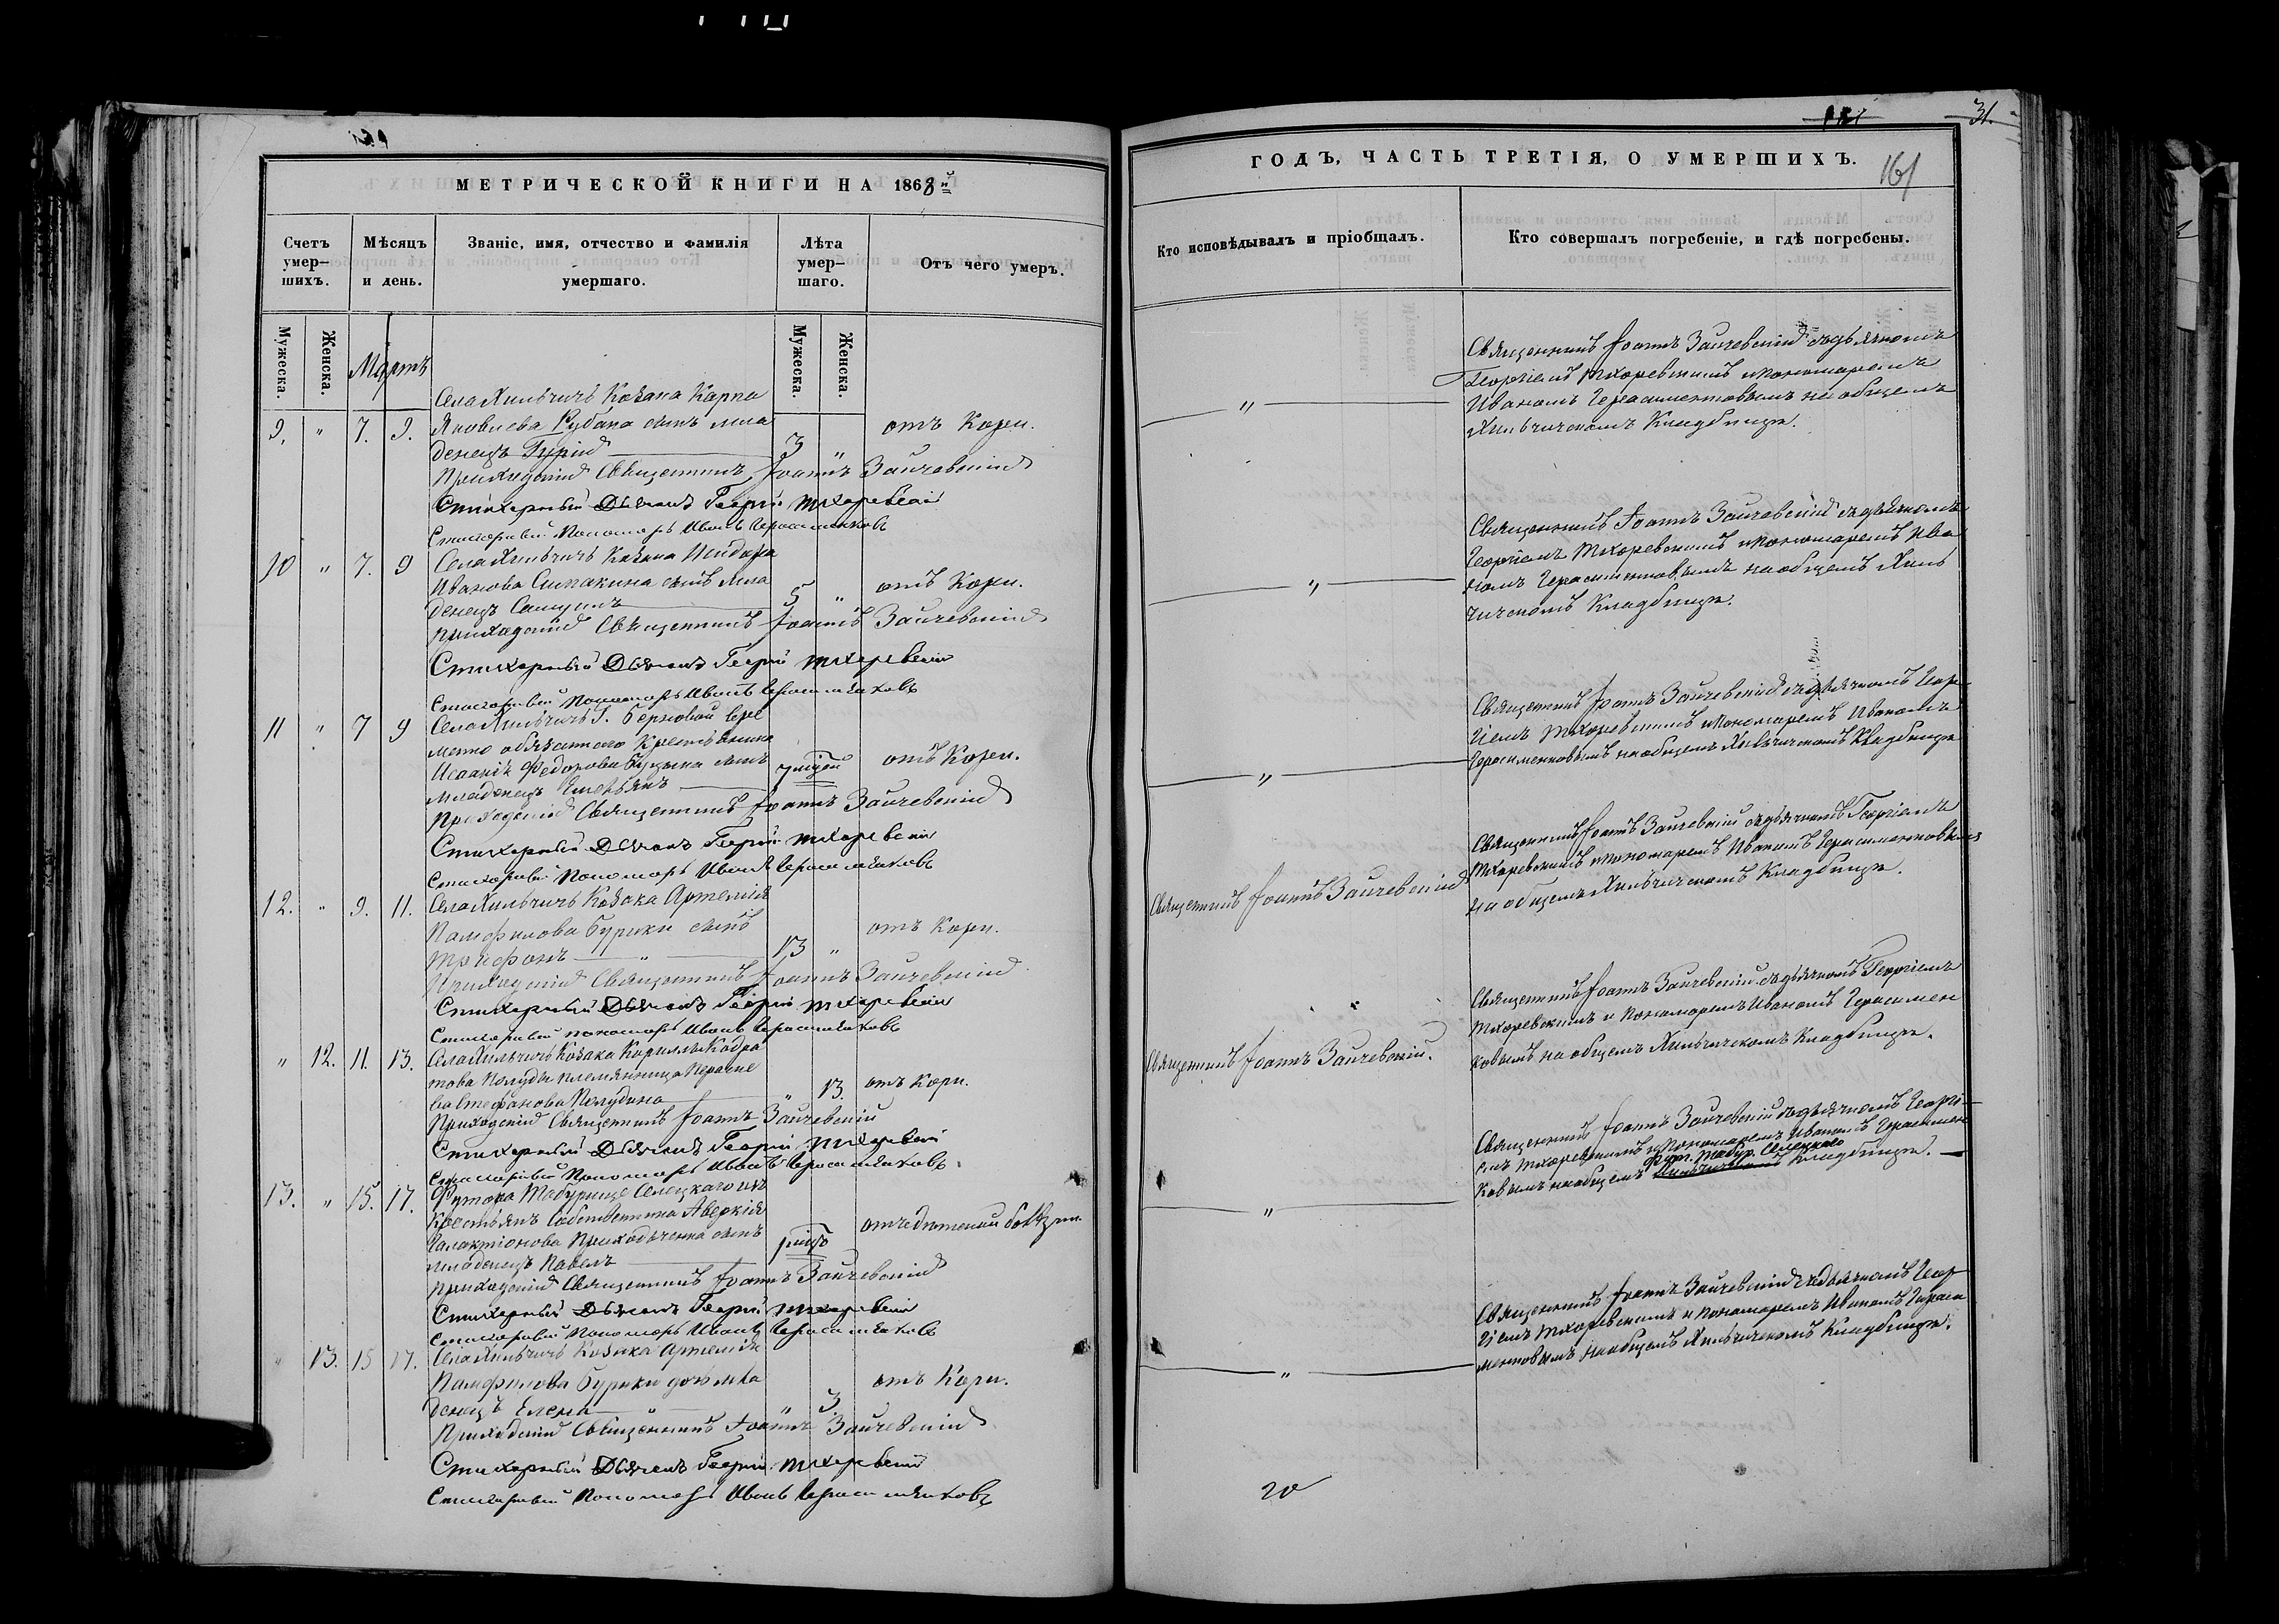 МЕТРИЧЕСКОЙ КНИГИ НА 1868й
Счетъ умер–шихъ.
Мѣсяцъ и день.
Званіе, имя, отчество и фамилія умершаго.
Лѣта умер–шаго.
Отъ чего умеръ.
Мужеска.
Женска.
Мужеска.
Женска.
Мартъ
Села Хильчичь Козака Карпа
9. " 7. 9. Яковлева Рубана сынъ мла
денецъ Гурій 3 " отъ Кори.
Приходскій Священникъ Іоаннъ Зайчевскій
Стихарный Дьячекъ Георгій Тихоревскій
Стихарный Пономарь Иванъ Герасименковъ
10 " 7. 9 Села Хильчичь Козака Исидора
Иванова Сипакина сынъ мла
денецъ Сампсонъ 5 " отъ Кори.
Приходскій Священникъ Іоаннъ Зайчевскій
Стихарный Дьячекъ Георгій Тихоревскій
Стихарный Пономарь Иванъ Герасименковъ
11 " 7 9 Села Хильчичь Г. Берновой вре
менно обязаннаго Крестьянина
Федорова сынъ отъ Кори.
младенецъ Емельянъ
Приходскій Священникъ Іоаннъ Зайчевскій
Стихарный Дьячекъ Георгій Тихоревскій
Стихарный Пономарь Иванъ Герасименковъ
12. " 9. 11. Села Хильчичь Козака Артемія
Памфилова Бурики сынъ
Трифонъ " 13 " отъ Кори.
Приходскій Священникъ Іоаннъ Зайчевскій
Стихарный Дьячекъ Георгій Тихоревскій
Стихарный пономарь Иванъ Герасименковъ
" 12. 11. 13. Села Хильчичь Козака Кирилла Кодра
това Полуды племянница Параске
ва Стефанова Полудина " 13. отъ Кори.
Приходскій Священникъ Іоаннъ Зайчевскій
Стихарный Дьячекъ Георгій Тихоревскій
Стихарный Пономарь Иванъ Герасименковъ
13. " 15. 17. Футора Табурище Селецкаго изъ
Крестьянъ Собственника Аверкія
Галактіонова Приходченка сынъ
младенецъ Павелъ
Приходскій Священникъ Іоаннъ Зайчевскій
Стихарный Дьячекъ Георгій Тихоревскій
Стихарный Пономарь Иванъ Герасименковъ
" 13. 15 17. Села Хильчичь Козака Артемія
Памфилова Бурики дочь мла
денецъ Елена " 3 отъ Кори.
Приходскій Священникъ Іоаннъ Зайчевскій
Стихарный Дьячекъ Георгій Тихоревскій
Стихарный Пономарь Иванъ Герасименковъ
31.
ГОДЪ, ЧАСТЬ ТРЕТІЯ, О УМЕРШИХЪ.
161
Кто исповѣдывалъ и пріобщалъ.
Кто совершалъ погребеніе, и гдѣ погребены.
Священникъ Іоаннъ Зайчевскій съ дьячкомъ
Георгіемъ Тихоревскимъ и пономаремъ
" Иваномъ Герасименковымъ на общемъ
Хильчичскомъ Кладбищѣ.
Священникъ Іоаннъ Зайчевскій съ дьячкомъ
Георгіемъ Тихоревскимъ и пономаремъ Ива
" номъ Герасименковымъ на общемъ Хиль
чичскомъ Кладбищѣ.
Священникъ Іоаннъ Зайчевскій съ дьячкомъ Геор
гіемъ Тихоревскимъ и пономаремъ Иваномъ
" Герасименковымъ на общемъ Хильчичскомъ Кладбищѣ
Священникъ Іоаннъ Зайчевскій съ дьячкомъ Георгіемъ
Тихоревскимъ и пономаремъ Иваномъ Герасименковымъ
Священникъ Іоаннъ Зайчевскій на общемъ Хильчичскомъ Кладбищѣ.
Священникъ Іоаннъ Зайчевскій съ дьячкомъ Георгіемъ
Тихоревскимъ и Пономаремъ Иваномъ Герасимен
Священникъ Іоаннъ Зайчевскій. ковымъ на общемъ Хильчичскомъ Кладбищѣ.
Священникъ Іоаннъ Зайчевскій съ дьячкомъ Георгі
емъ Тихоревскимъ и Пономаремъ Иваномъ Герасимен
фут. Табур. Селецкаго
" ковымъ на общемъ Хильчичскомъ Кладбищѣ.
Священникъ Іоаннъ Зайчевскій съ дьячкомъ Геор
гіемъ Тихоревскимъ и пономаремъ Иваномъ Гераси
" менковымъ на общемъ Хильчичскомъ Кладбищѣ.
20